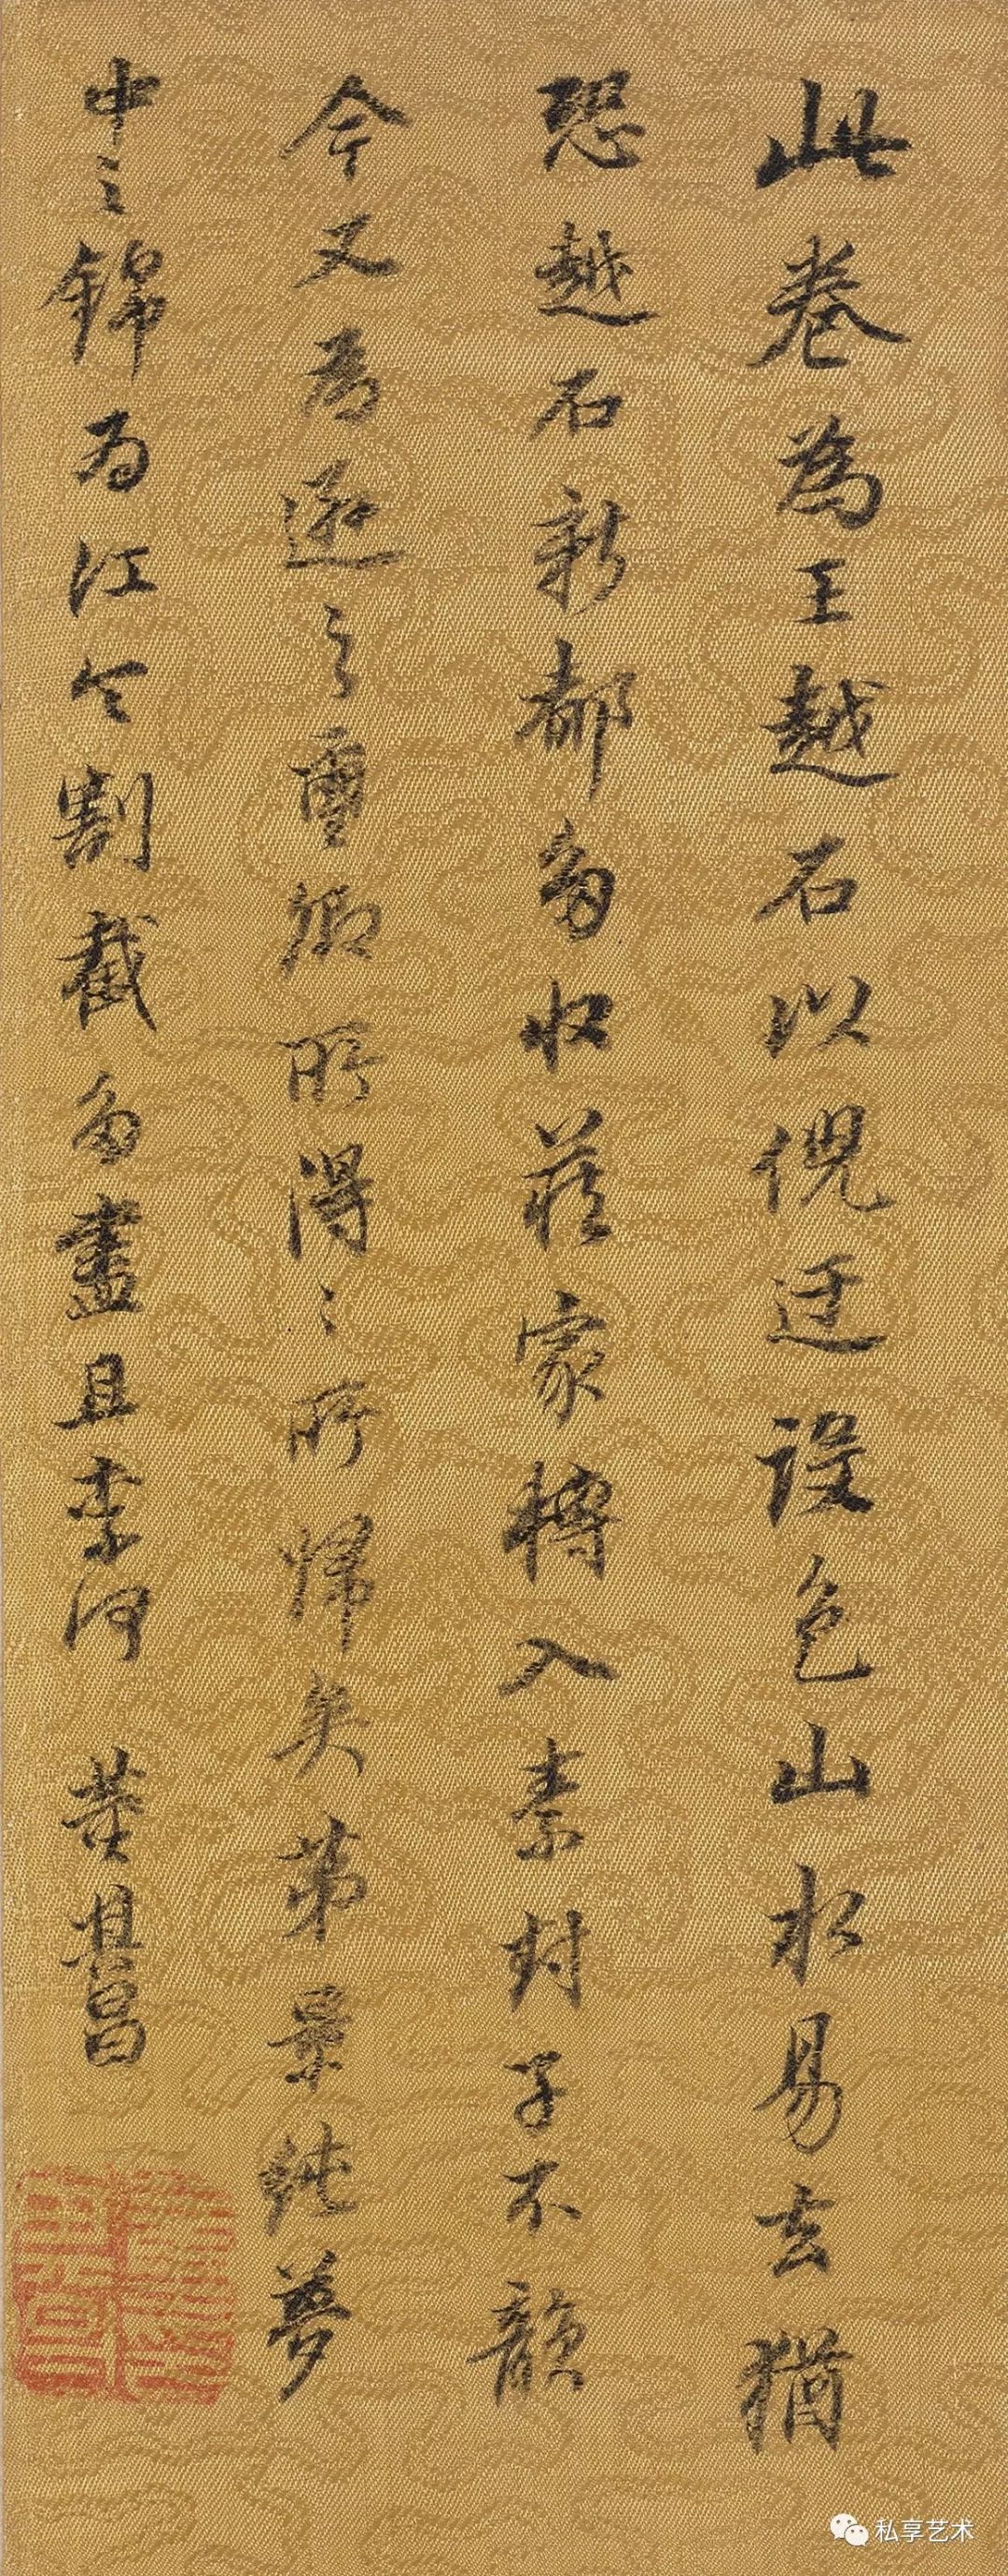 此卷為王越石以倪迂設色山水易去猶
恐越石新都多收藏家轉入素封子不韻
今又為遜之璽卿所得〻所歸矣第景純夢
中之錦為江令割截多盡且柰何 董其昌
私享艺术